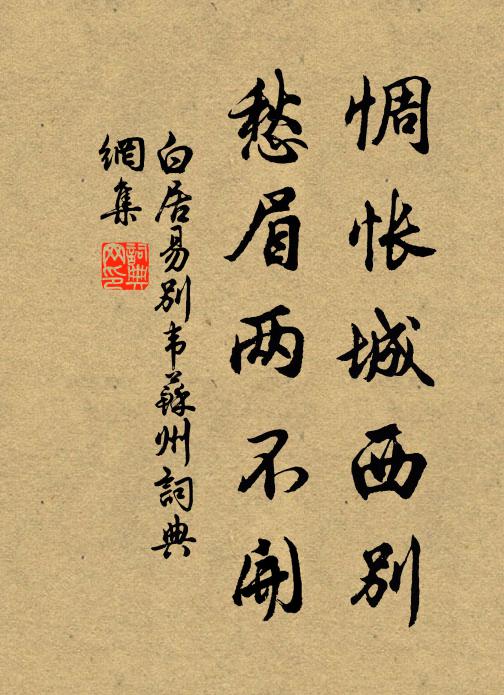 惆怅城西别
愁眉两不開
白居易别韦蘇州詞典
網集
詞典
网印